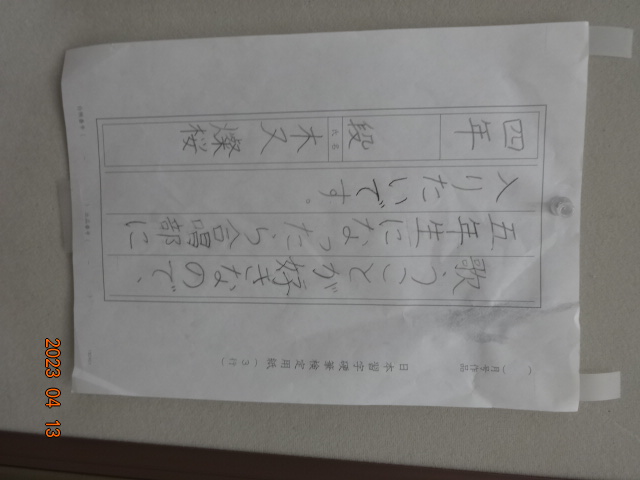 日本習字硬筆検定用紙（3行）
（ 月号作品）
歌うことが好きなので、
五年生になったら合唱部に
入りたいです。
四年
段
氏名
木又
燦桜
2023 04 13